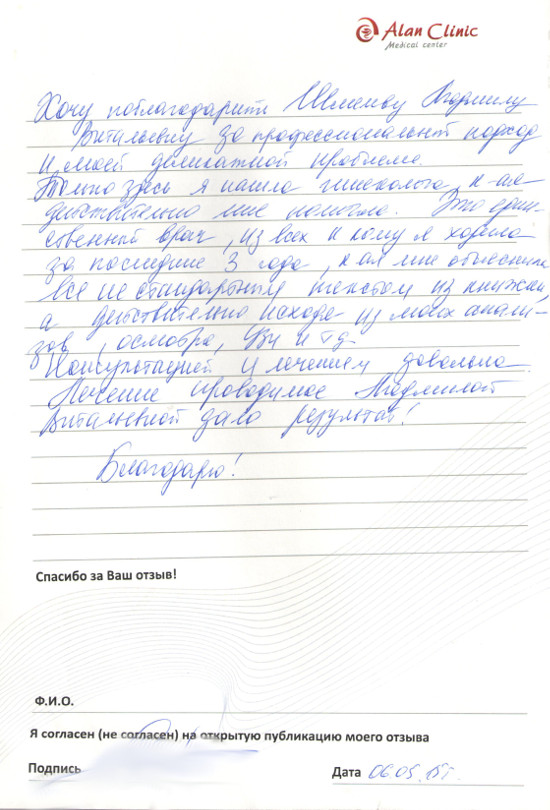 Alan Clinic
Medical center
Хочу поблагодарить Людмилу
Витальевну за профессиональный подход
к моей деликатной проблеме.
Только здесь я нашла гинеколога, к-ая
действительно мне помогла. Это един-
ственный врач, из всех к кому я ходила
за последние 3 года, к-ая мне объяснила
все не стандартным текстом из книжки,
а действительно исходя из моих анали-
зов, осмотра, УЗИ и т.д.
Консультацией и лечением довольна.
Лечение проводимое Людмилой
Витальевной дало результат!
Благодарю!
Спасибо за Ваш отзыв!
Ф.И.О.
Я согласен (не согласен) на открытую публикацию моего отзыва
Подпись
Дата 06.05.15г.